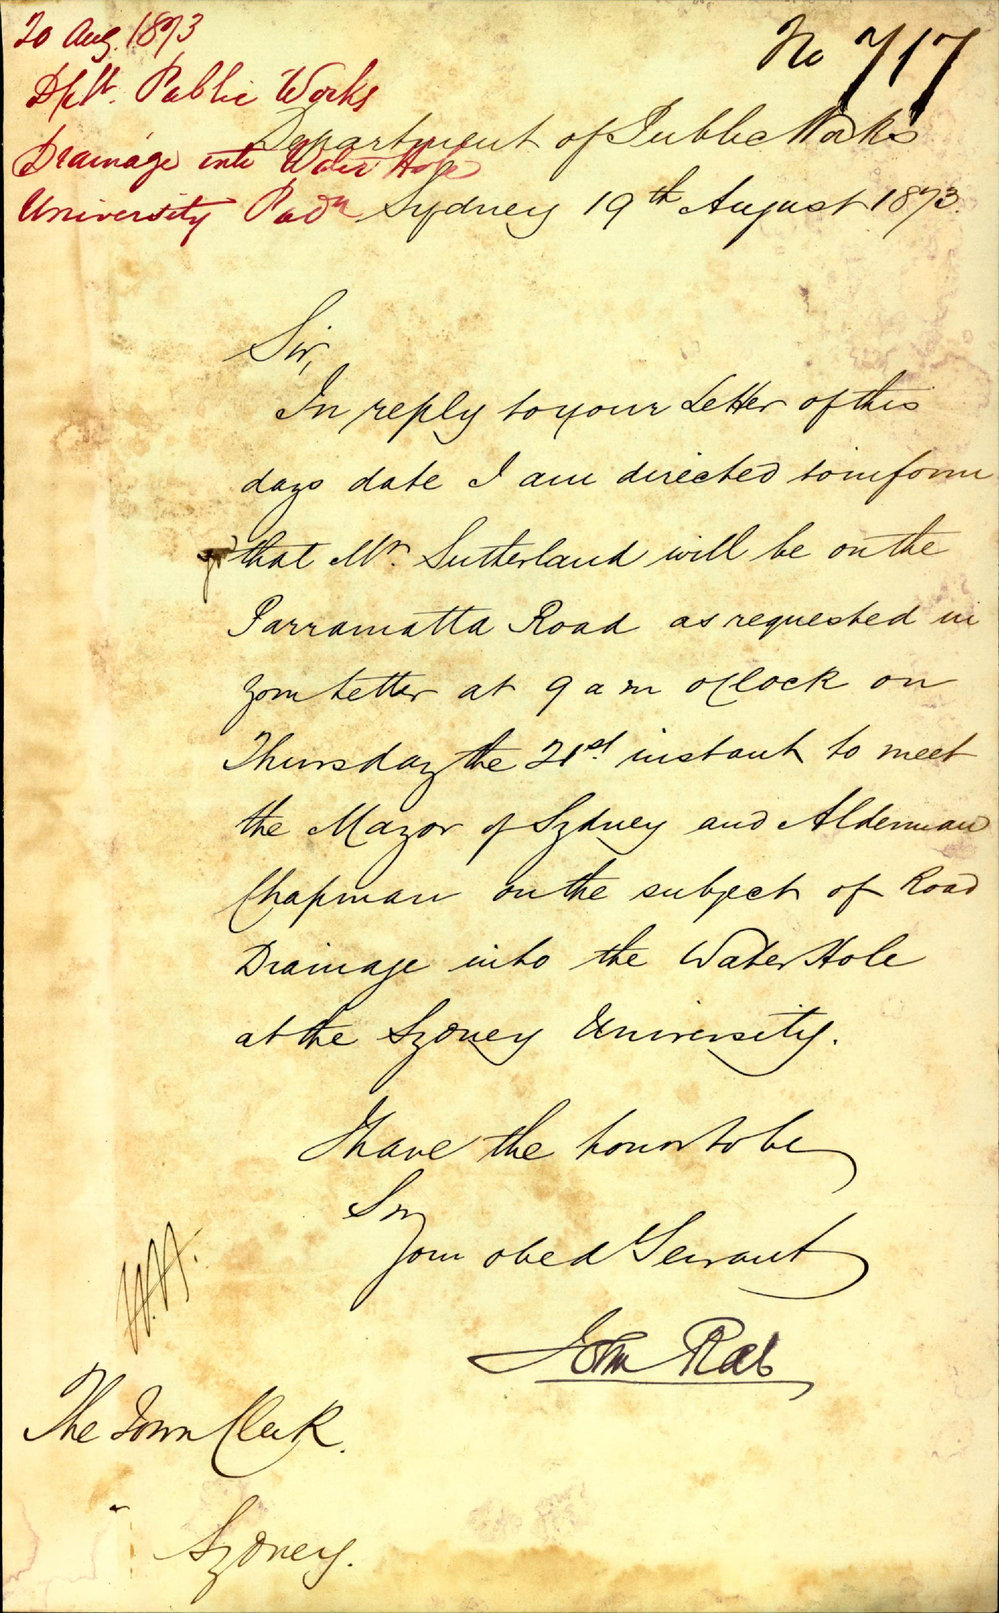 20 Aug. 1873
Dpt. Public Works
Drainage into Water Hole
University Padk
No 717
Department of Public Works
Sydney 19th August 1873.
Sir,
In reply to your Letter of this
days date I am directed to inform
that Mr. Sutherland will be on the
Parramatta Road as requested in
your letter at 9 a m oClock on
Thursday the 21st. instant to meet
the Mayor of Sydney and Alderman
Chapman on the subject of Road
Drainage into the Water Hole
at the Sydney University.
I have the honor to be
Sir
Your obed Servant
John Rae
The Town Clerk.
Sydney.